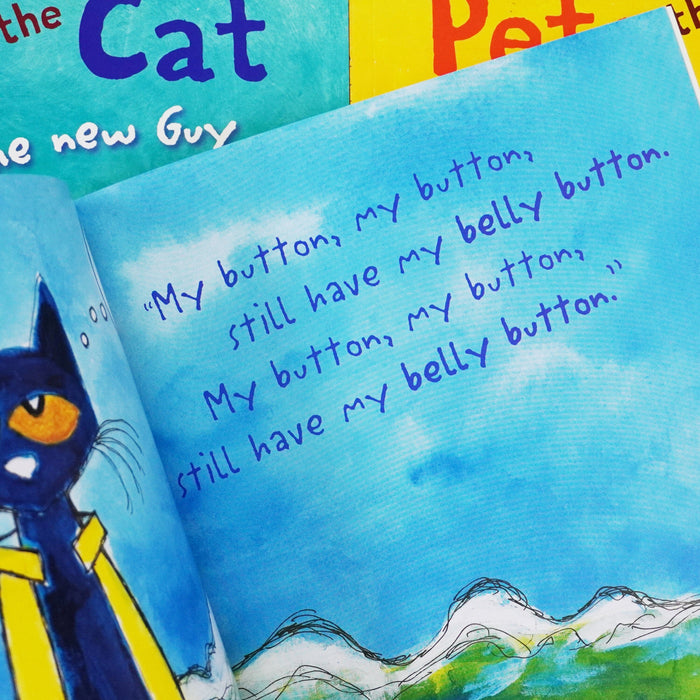 the
Cat
he new Guy
Pet
th
"My button, my button,
still have my belly button.
My button, my button,
still have my belly button."